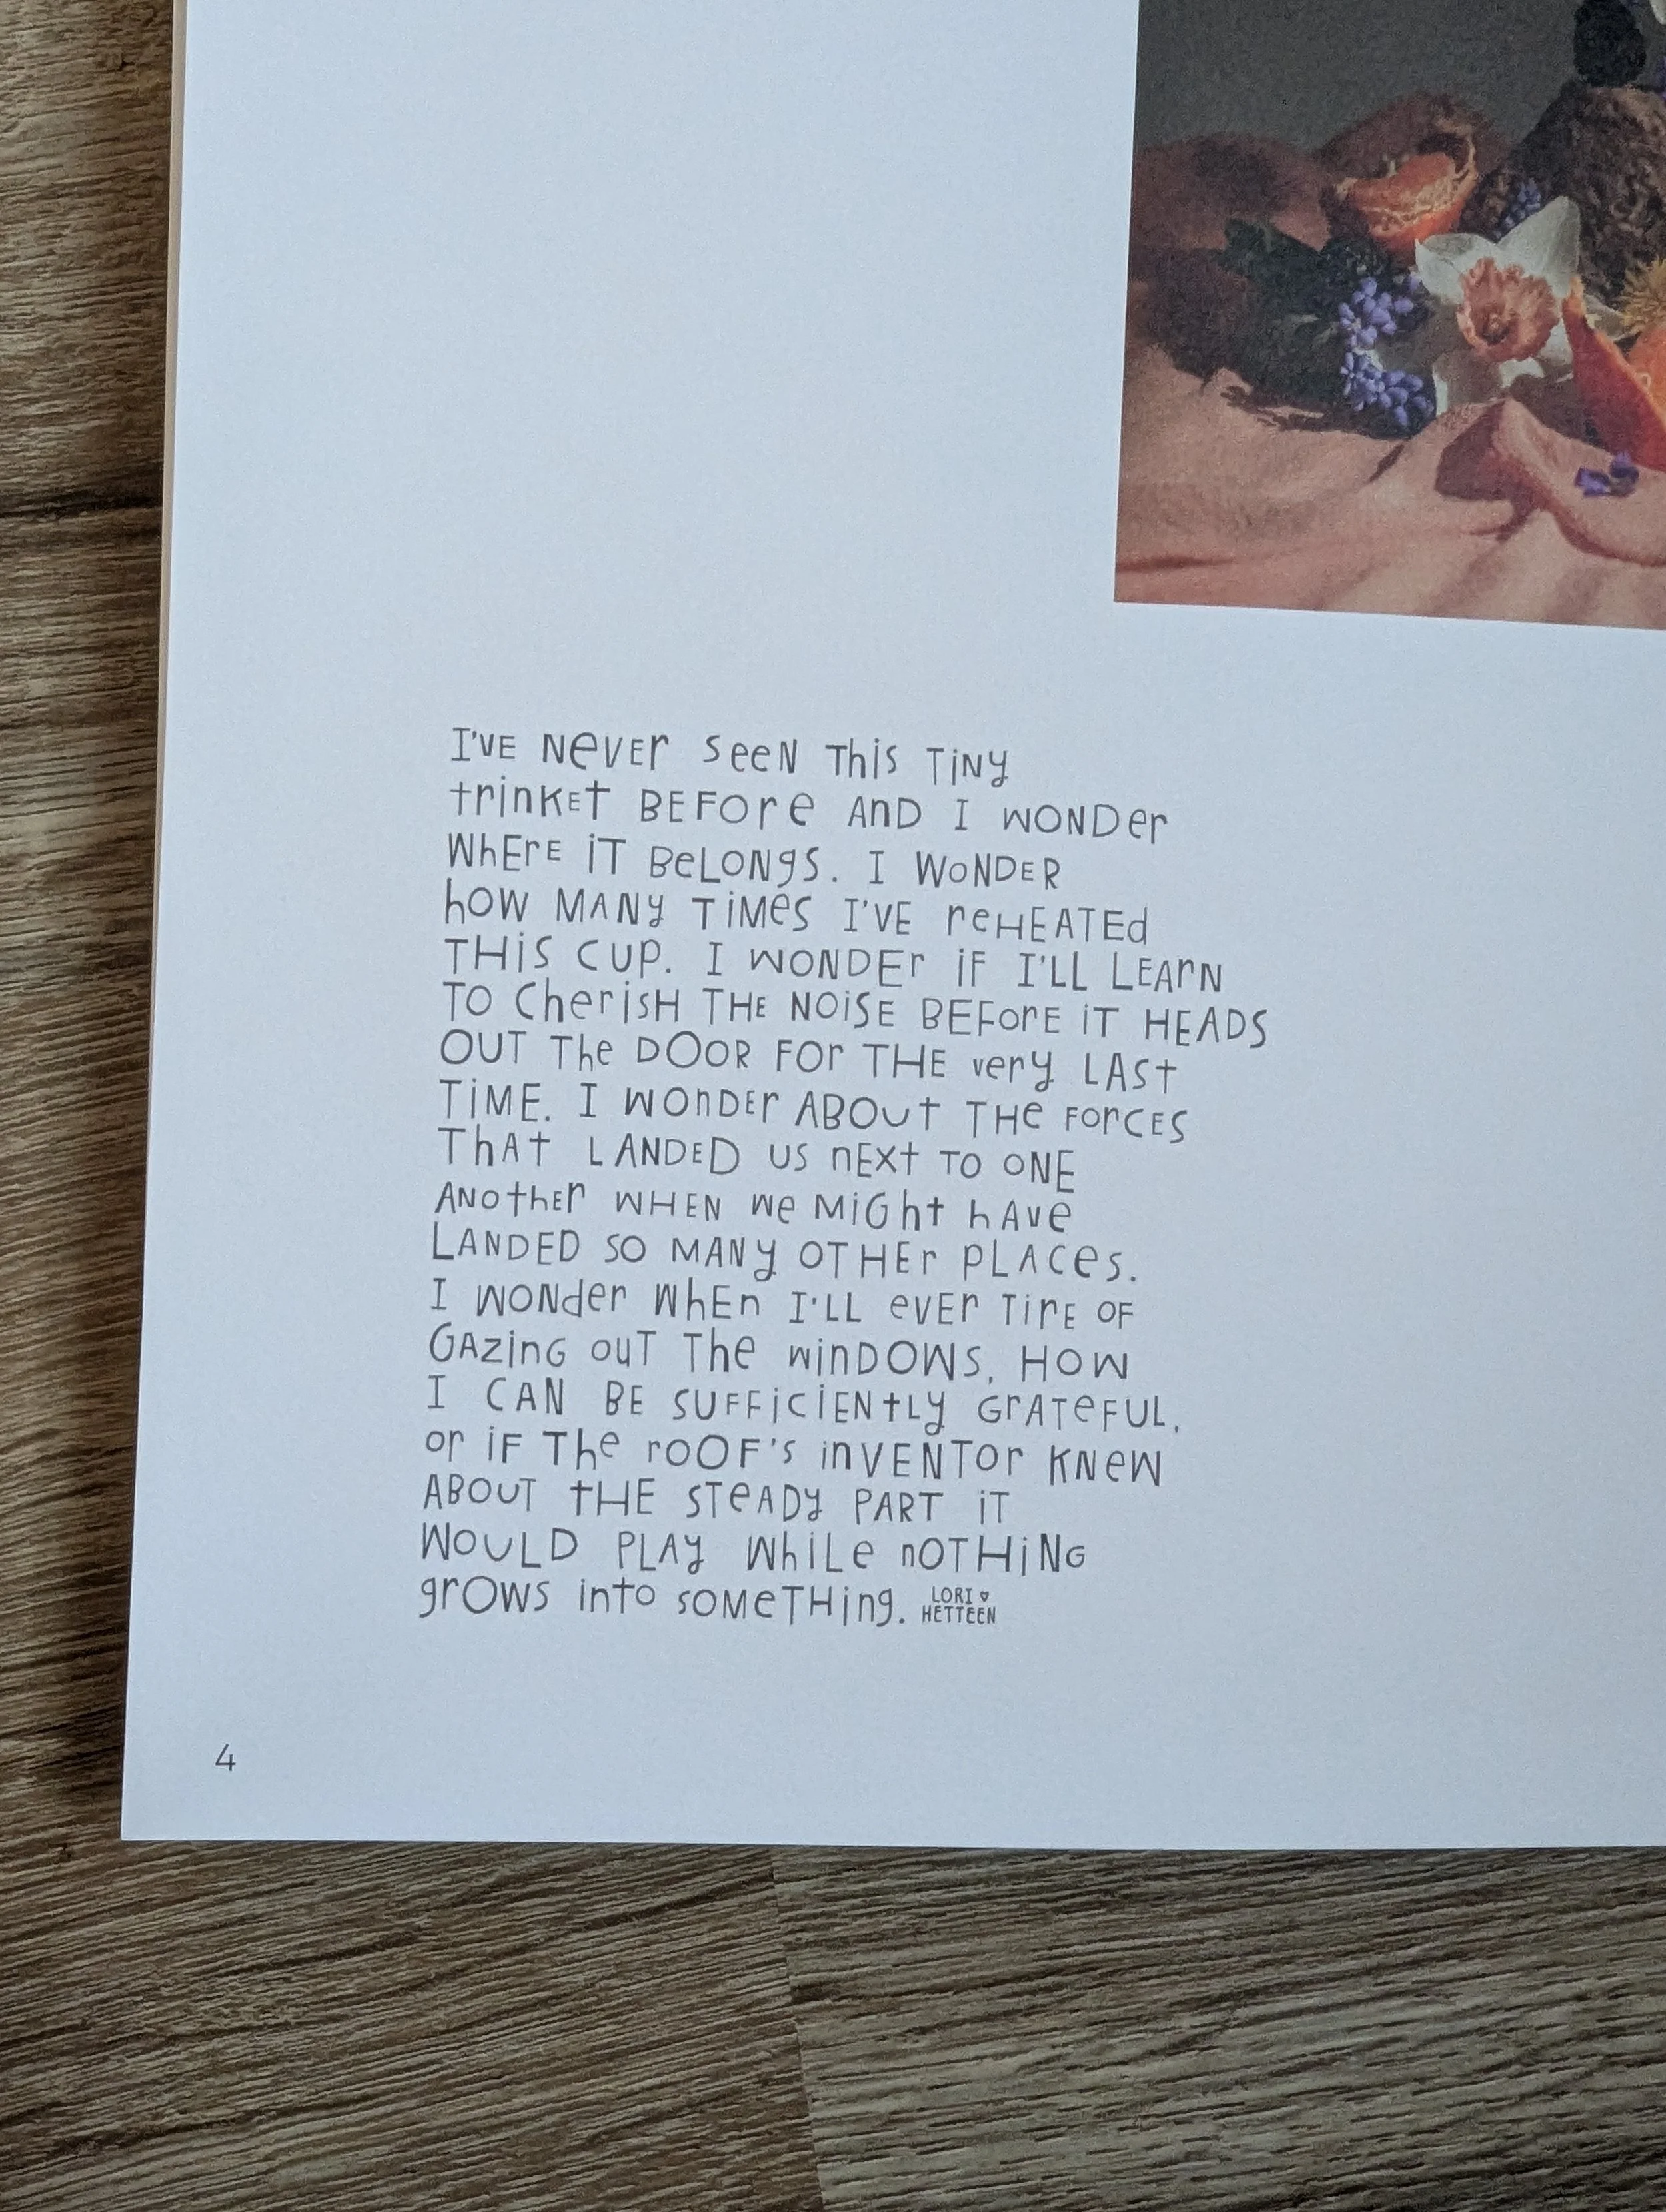 I'VE NEVER SEEN THIS TINY
TRINKET BEFORE AND I WONDER
WHERE IT BELONGS. I WONDER
HOW MANY TIMES I'VE REHEATED
THIS CUP. I WONDER IF I'LL LEARN
TO CHERISH THE NOISE BEFORE IT HEADS
OUT THE DOOR FOR THE VERY LAST
TIME. I WONDER ABOUT THE FORCES
THAT LANDED US NEXT TO ONE
ANOTHER WHEN WE MIGHT HAVE
LANDED SO MANY OTHER PLACES.
I WONDER WHEN I'LL EVER TIRE OF
GAZING OUT THE WINDOWS, HOW
I CAN BE SUFFICIENTLY GRATEFUL,
OR IF THE ROOF'S INVENTOR KNEW
ABOUT THE STEADY PART IT
WOULD PLAY WHILE NOTHING
GROWS INTO SOMETHING.
LORI
HETTEEN
4